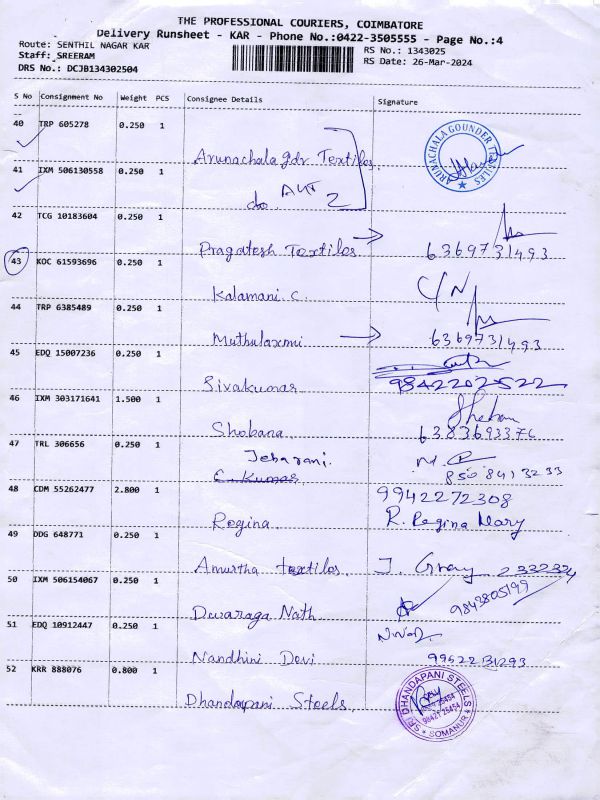 THE PROFESSIONAL COURIERS, COIMBATORE
Delivery Runsheet - KAR - Phone No.:0422-3505555 - Page No.:4
Route: SENTHIL NAGAR KAR
RS No.: 1343025
Staff: SREERAM
RS Date: 26-Mar-2024
DRS No.: DCJB134302504
S No Consignment No Weight PCS Consignee Details Signature
40 TRP 605278 0.250 1
Arunachala gdr. Textiles.
ARUNACHALA GOUNDER TEXTILES
41 IXM 506130558 0.250 1
do
2
42 TCG 10183604 0.250 1
Pragatesh Textiles
6369731493
43 KOC 61593696 0.250 1
Kalamani c.
C/N
44 TRP 6385489 0.250 1
Muthulaxmi
6369731493
45 EDQ 15007236 0.250 1
Sivakumar
9842202522
46 IXM 303171641 1.500 1
Shobana
638369337C
47 TRL 306656 0.250 1
Jebarani.
C. Kumar
8508413233
48 CDM 55262477 2.800 1
9942272308
Regina
R. Regina Mary
49 DDG 648771 0.250 1
Amurtha textiles.
50 IXM 506154067 0.250 1
Dwaraga Nath
9843805199
51 EDQ 10912447 0.250 1
Nandhini Devi
52 KRR 888076 0.800 1
Dhandapani Steels.
SRI DHANDAPANI STEELS
SOMANUR